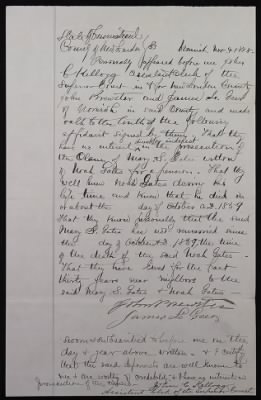 State of Connecticut }
County of New London } ss Norwich Nov. 4, 1898.
Personally appeared before me John
C Kellogg Assistant Clerk of the
Superior Court in & for New London County
John Brewster and James L. Geer
of Norwich in said County, and made
oath to the truth of the following
affidavit signed by them. That they
have no interest direct or indirect in the prosecution of
the Claim of Mary S. Gates widow
of Noah Gates for a pension. That they
well knew Noah Gates during his
life time and know that he died on
or about the day of October A.D. 1889
That they know personally that the said
Mary S. Gates has not remarried since
the day of October A.D. 1889, the time
of the death of the said Noah Gates.
That they have lived for the past
thirty years near neighbors to the
said Mary S. Gates & Noah Gates
John Brewster
James L. Geer
Sworn & Subscribed to before me on the
day & year above written. & I certify
that the said deponents are well known to
me & are worthy of credibility & have no interest in
prosecution of this claim. John C. Kellogg
Assistant Clerk of the Superior Court